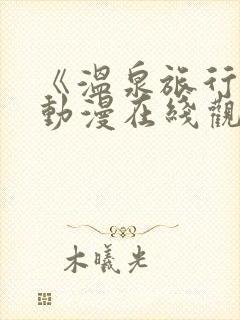 《溫泉旅行
動漫在綫觀
木曦光